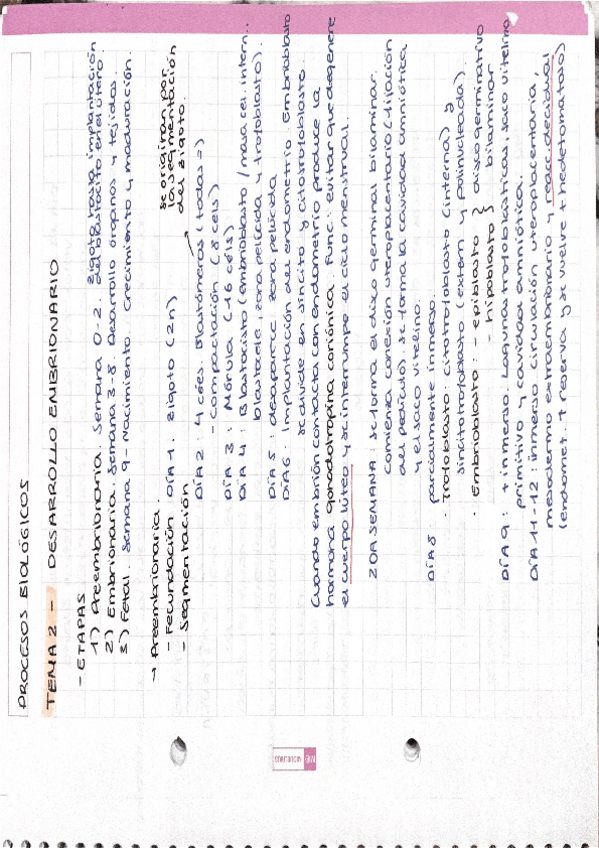 PROCESOS BIOLÓGICOS
TEMA 2 - DESARROLLO EMBRIONARIO
- ETAPAS
1) Preembrionaria. Semana 0-2. Zigoto hasta implantación
del blastocito en el útero.
2) Embrionaria. Semana 3-8. Desarrollo órganos y tejidos.
3) Fetal. Semana 9 - Nacimiento. Crecimiento y maduración.
→ Preembrionaria.
- Fecundación DÍA 1. Zigoto (2n)
- Segmentación
se originan por
la segmentación
del zigoto.
DÍA 2: 4 céls. Blastómeros (todas =)
- Compactación (8 céls)
DÍA 3: Mórula (16 céls)
DÍA 4: Blastocisto (embrioblasto / masa cel. intern.
blastocele, zona pelúcida y trofoblasto).
DÍA 5: desaparece zona pelúcida
DÍA 6: Implantación del endometrio. Embrioblasto
se divide en sincito y citotrofoblasto.
Cuando embrión contacta con endometrio produce la
hormona gonadotropina coriónica. Func: evitar que degenere
el cuerpo lúteo y se interrumpe el ciclo menstrual.
2DA SEMANA: se forma el disco germinal bilaminar.
comienza conexión uteroplacentario (fijación
del pedículo). se forma la cavidad amniótica
y el saco vitelino.
DÍA 8 parcialmente inmerso.
· Trofoblasto: citotrofoblasto (interna) y
sincitotrofoblasto (extern y polinucleada).
· Embrioblasto: - epiblasto } disco germinativo
- hipoblasto } bilaminar
DÍA 9: + inmerso. Lagunas trofoblásticas, saco vitelino
primitivo y cavidad amniótica.
DÍA 11-12: inmerso. circulación uteroplacentaria,
mesodermo extraembrionario y reacc. decidual
(endomet. + reserva y se vuelve + hedetomatoso)